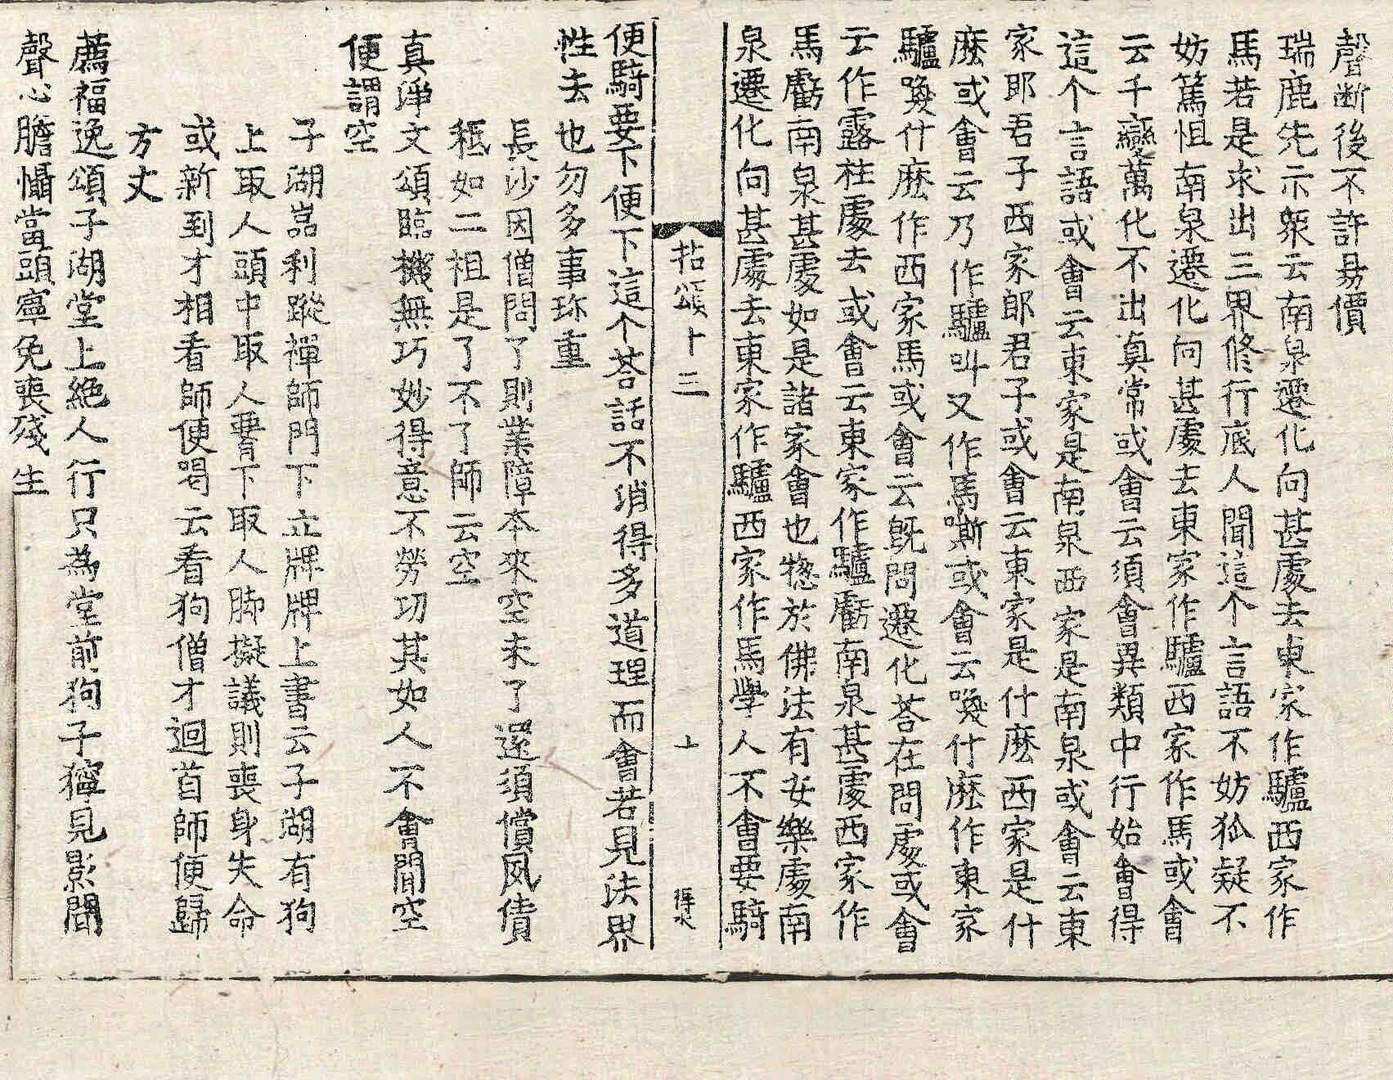 聲断後不許易價
瑞鹿先示衆云南泉遷化向甚處去東家作驢西家作
馬若是求出三界修行底人聞這个言語不妨狐疑不
妨驚怛南泉遷化向甚處去東家作驢西家作馬或會
云千變萬化不出真常或會云須會異類中行始會得
這个言語或會云東家是南泉西家是南泉或會云東
家郎君子西家郎君子或會云東家是什麽西家是什
麽或會云乃作驢叫又作馬嘶或會云喚什麽作東家
驢喚什麽作西家馬或會云既問遷化荅在問處或會
云作露柱處去或會云東家作驢虧南泉甚處西家作
馬虧南泉甚處如是諸家會也揔於佛法有安樂處南
泉遷化向甚處去東家作驢西家作馬學人不會要騎
拈頌十三
上
得水
便騎要下便下這个荅話不消得多道理而會若見法界
性去也勿多事珎重
長沙因僧問了則業障本來空未了還須償夙債
秖如二祖是了不了師云空
真淨文頌臨機無巧妙得意不勞功其如人不會聞空
便謂空
子湖嵓利蹤禪師門下立牌牌上書云子湖有狗
上取人頭中取人腎下取人脚擬議則喪身失命
或新到才相看師便喝云看狗僧才迴首師便歸
方丈
薦福逸頌子湖堂上絶人行只為堂前狗子獰見影聞
聲心膽懾當頭寧免喪殘生